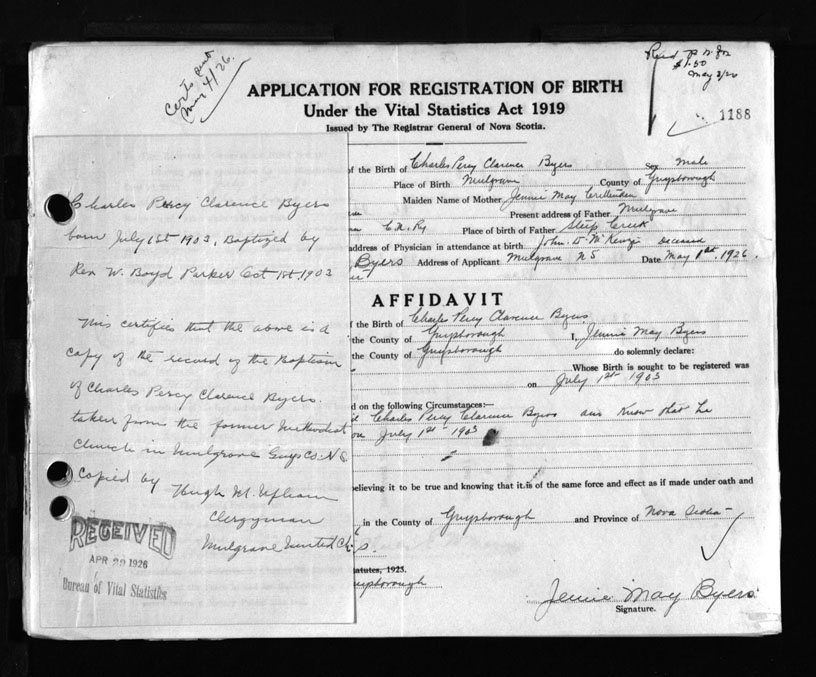 Certs sent
May 4/26.
$1.50
May 3/26
1188
APPLICATION FOR REGISTRATION OF BIRTH
Under the Vital Statistics Act 1919
Issued by The Registrar General of Nova Scotia.
of the Birth of Charles Percy Clarence Byers Sex Male
Place of Birth Mulgrave County of Guysborough
Maiden Name of Mother Jennie May Crittenden
Present address of Father Mulgrave
C.N. Ry Place of birth of Father Steep Creek
address of Physician in attendance at birth John D McKenzie deceased
Byers Address of Applicant Mulgrave N S Date May 1st, 1926.
AFFIDAVIT
f the Birth of Charles Percy Clarence Byers
the County of Guysborough I, Jennie May Byers
the County of Guysborough do solemnly declare:
Whose Birth is sought to be registered was
on July 1st 1903
d on the following Circumstances:—
Charles Percy Clarence Byers and Know that he
on July 1st 1903
elieving it to be true and knowing that it is of the same force and effect as if made under oath and
in the County of Guysborough and Province of Nova Scotia
S.
tatutes, 1925.
uysborough
Jennie May Byers
Signature.
Charles Percy Clarence Byers
born July 1st 1903, Baptized by
Rev W. Boyd Parker Oct 1st, 1903
This certifies that the above is a
copy of the record of the Baptism
of Charles Percy Clarence Byers.
taken from the former Methodist
Church in Mulgrave Guys Co. N.S.
Copied by
Hugh M. Upham
Clergyman
Mulgrave United Ch
RECEIVED
APR 29 1926
Bureau of Vital Statistics